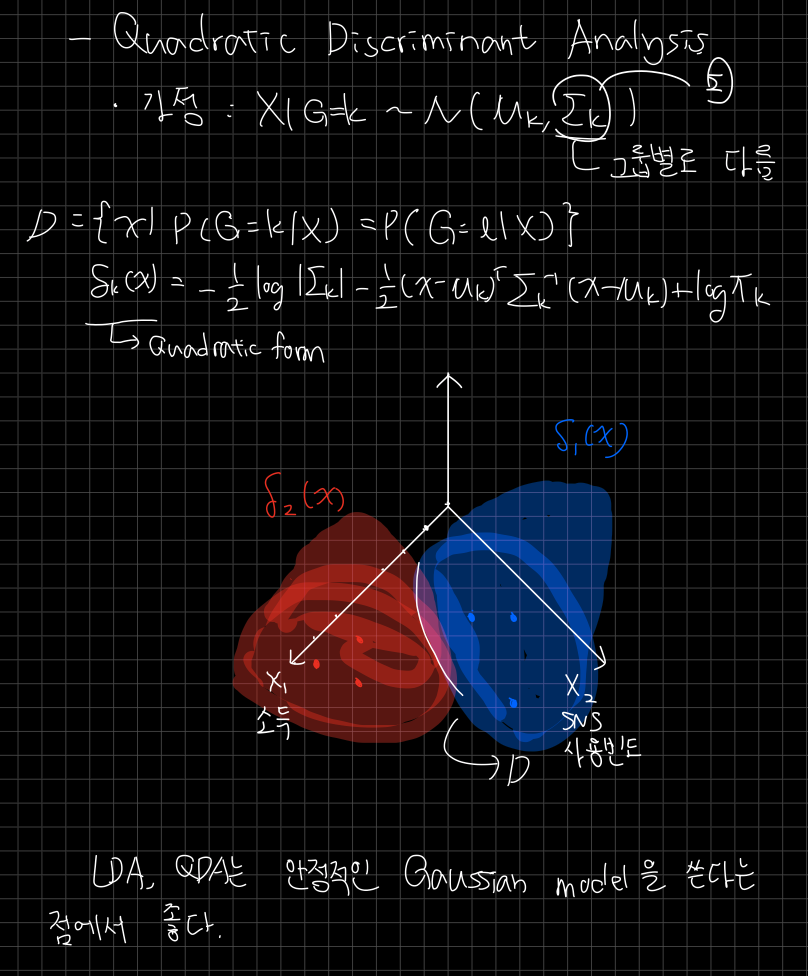 - Quadratic Discriminant Analysis
· 가정 : X|G=k ~ N(μk, Σk) Σ
그룹별로 다름
D = {x| P(G=k|X) = P(G=l|X)}
δk(x) = -1/2 log |Σk| - 1/2 (x-μk)ᵀ Σk⁻¹ (x-μk) + log πk
↳ Quadratic form
δ₁(x)
δ₂(x)
X₁
X₂
소득
SNS
사용빈도
D
LDA, QDA는 안정적인 Gaussian model을 쓴다는
점에서 좋다.